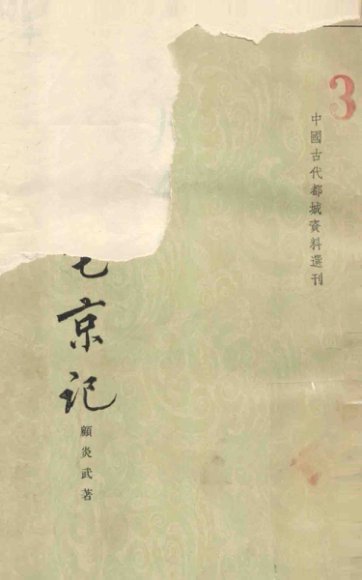 3
中國古代都城資料選刊
宅京记
顧炎武著